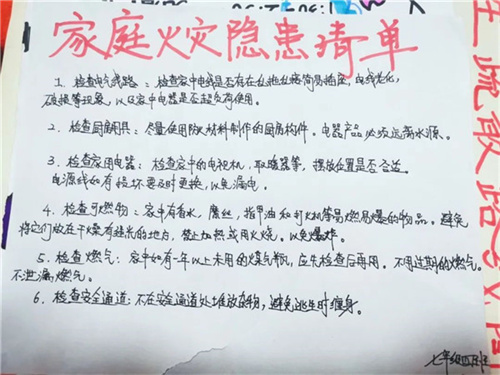 家庭火灾隐患清单
1. 检查电气线路：检查家中电线是否存在乱拉乱接简易插座，电线老化，
破损等现象，以及家中电器是否超负荷使用。
2. 检查厨厕用具：尽量使用防火材料制作的厨房构件。电器产品必须远离水源。
3. 检查家用电器：检查家中的电视机，取暖器等，摆放位置是否合适。
电源线如有损坏要及时更换，以免漏电。
4. 检查可燃物：家中有香水，摩丝，指甲油和打火机等易燃易爆的物品。避免
将它们放在干燥有阳光的地方，禁止加热或用火烧。以免爆炸。
5. 检查燃气：家中如有一年以上未用的煤气瓶，应先检查后再用。不用过期的燃气。
不泄漏燃气。
6. 检查安全通道：不在安全通道处堆放杂物，避免逃生时缠身。
七年级四班